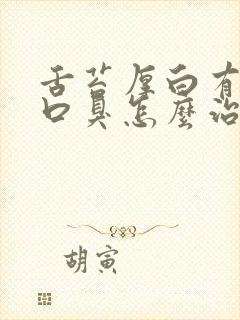 舌苔厚白有
口臭怎麼治
胡寅